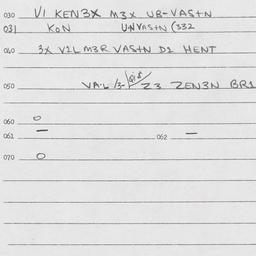 030 VI KEN3X M3X UB-VAS+N
031 KON UNVAS+N (332
040 3X V2L M3R VAS+N D2 HENT
050 VA-L Z3 ZEN3N BR1
060 0
061 — 062 —
070 0